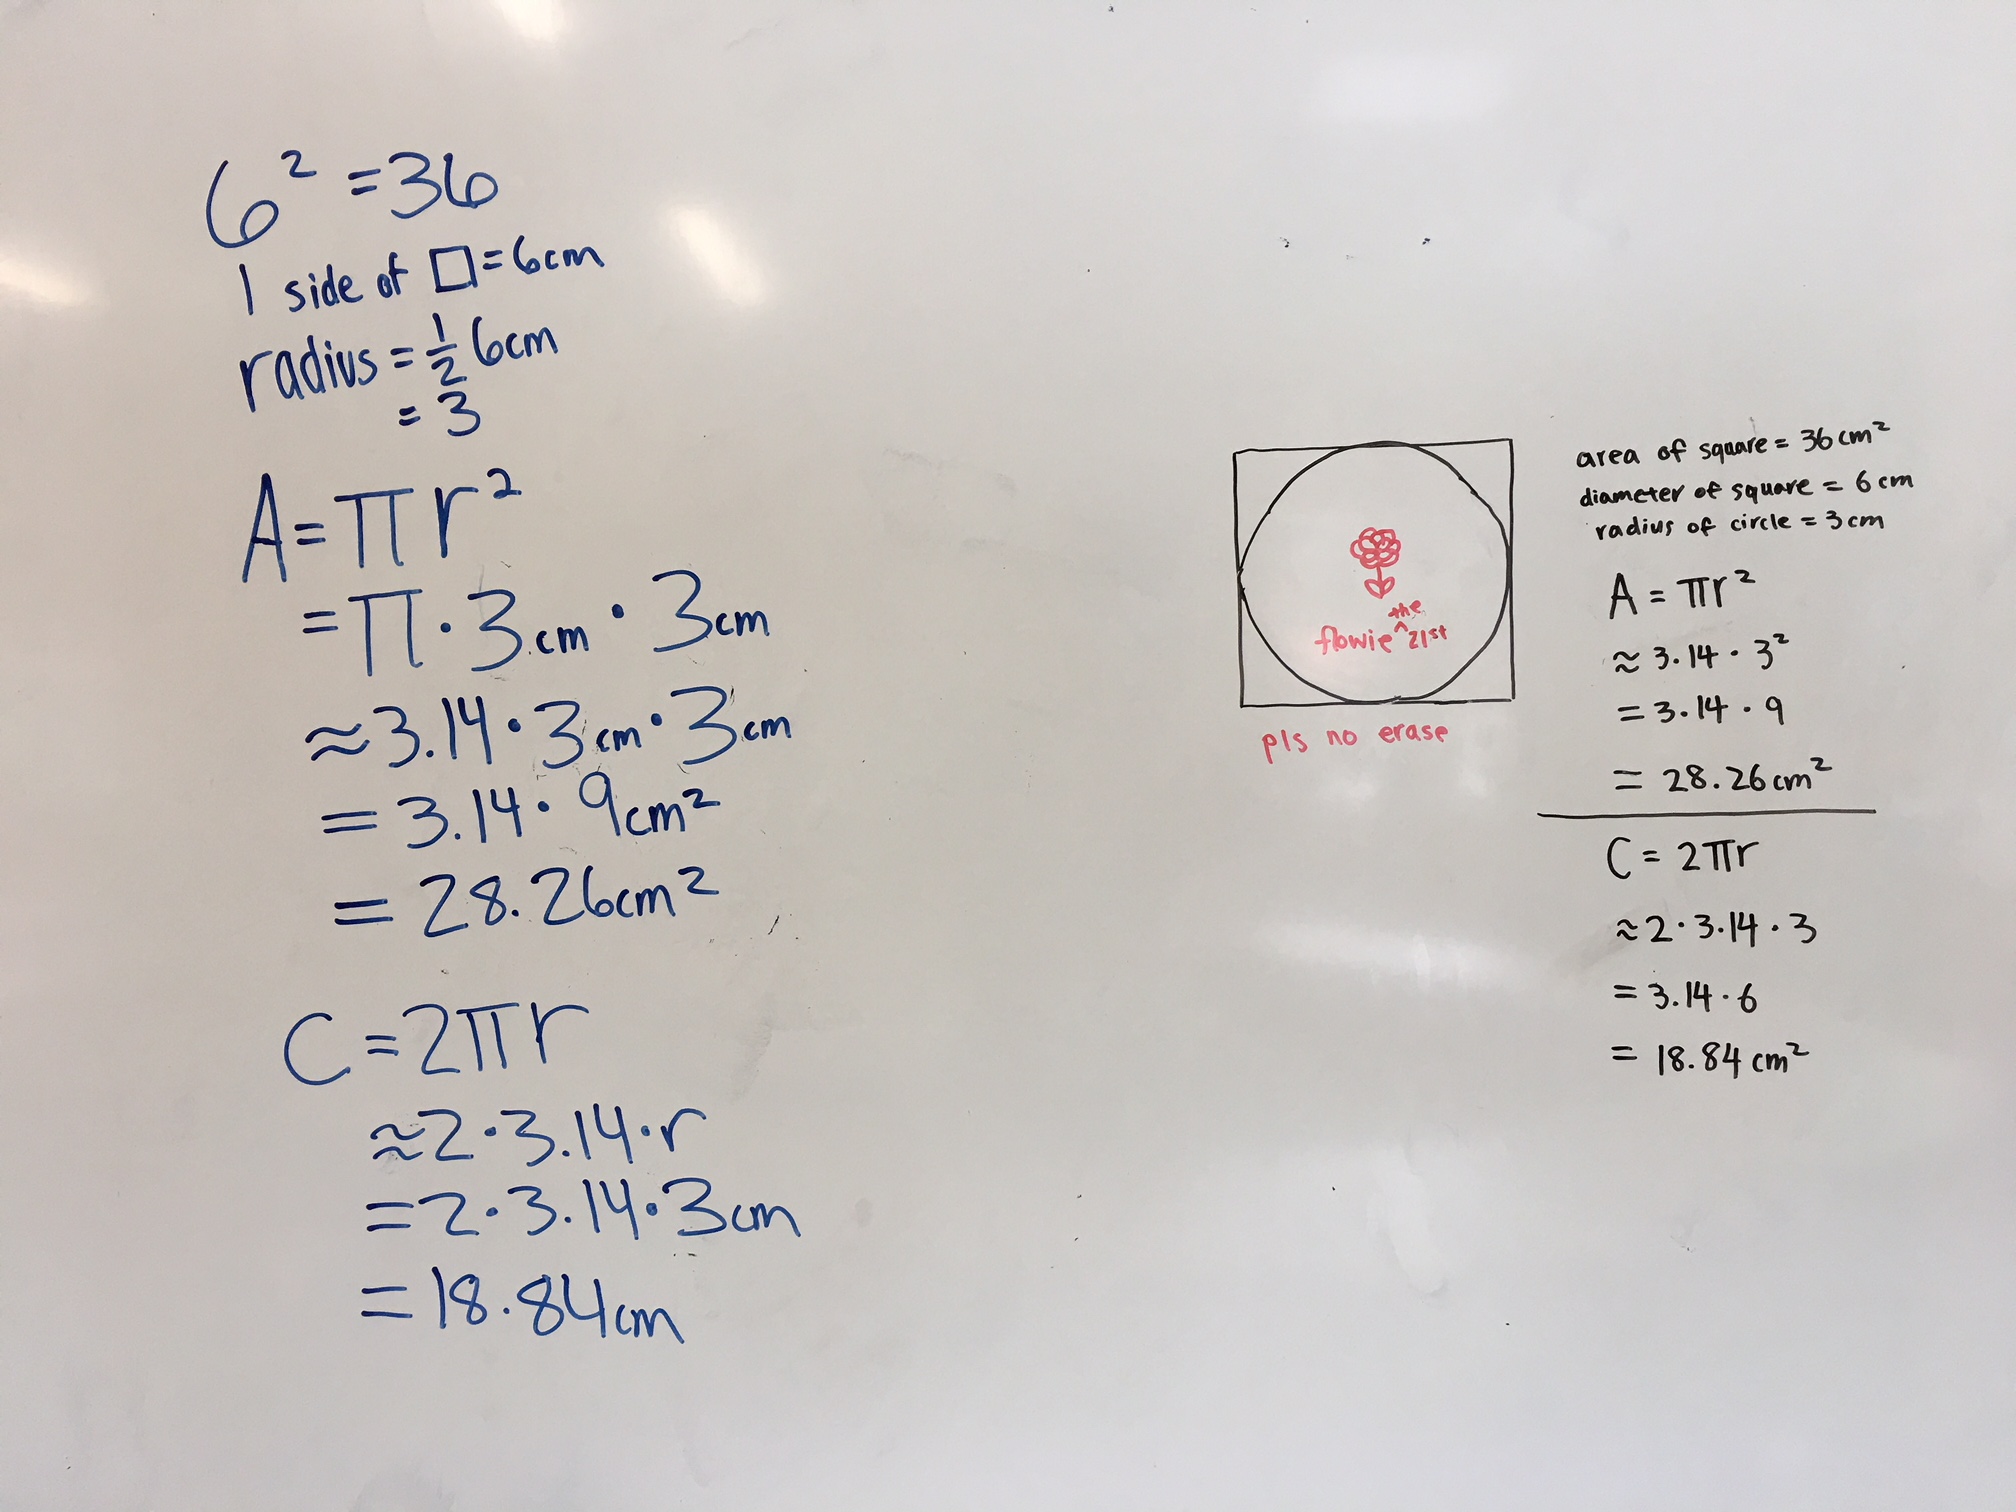 6² = 36
1 side of □ = 6cm
radius = 1/2 6cm
= 3
A = πr²
= π · 3cm · 3cm
≈ 3.14 · 3cm · 3cm
= 3.14 · 9cm²
= 28.26cm²
C = 2πr
≈ 2 · 3.14 · r
= 2 · 3.14 · 3cm
= 18.84cm
flowie ^the 21st
pls no erase
area of square = 36 cm²
diameter of square = 6 cm
radius of circle = 3 cm
A = πr²
≈ 3.14 · 3²
= 3.14 · 9
= 28.26 cm²
C = 2πr
≈ 2 · 3.14 · 3
= 3.14 · 6
= 18.84 cm²